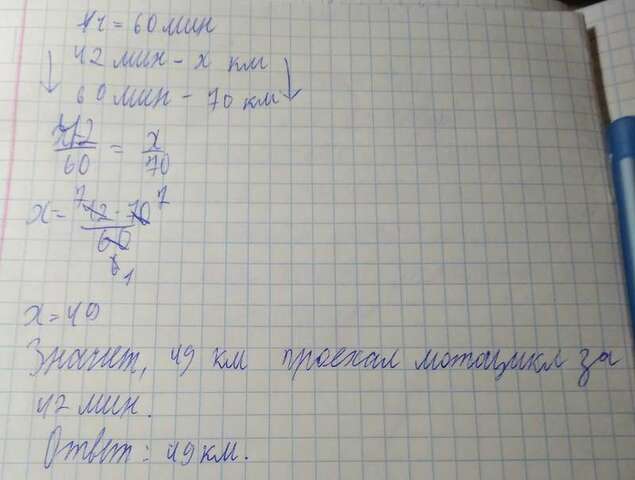 1ч = 60 мин
42 мин - x км
60 мин - 70 км
42/60 = x/70
x = 42 · 70 / 60
7 7
6 1
x = 49
Значит, 49 км проехал мотоцикл за
42 мин.
Ответ: 49 км.